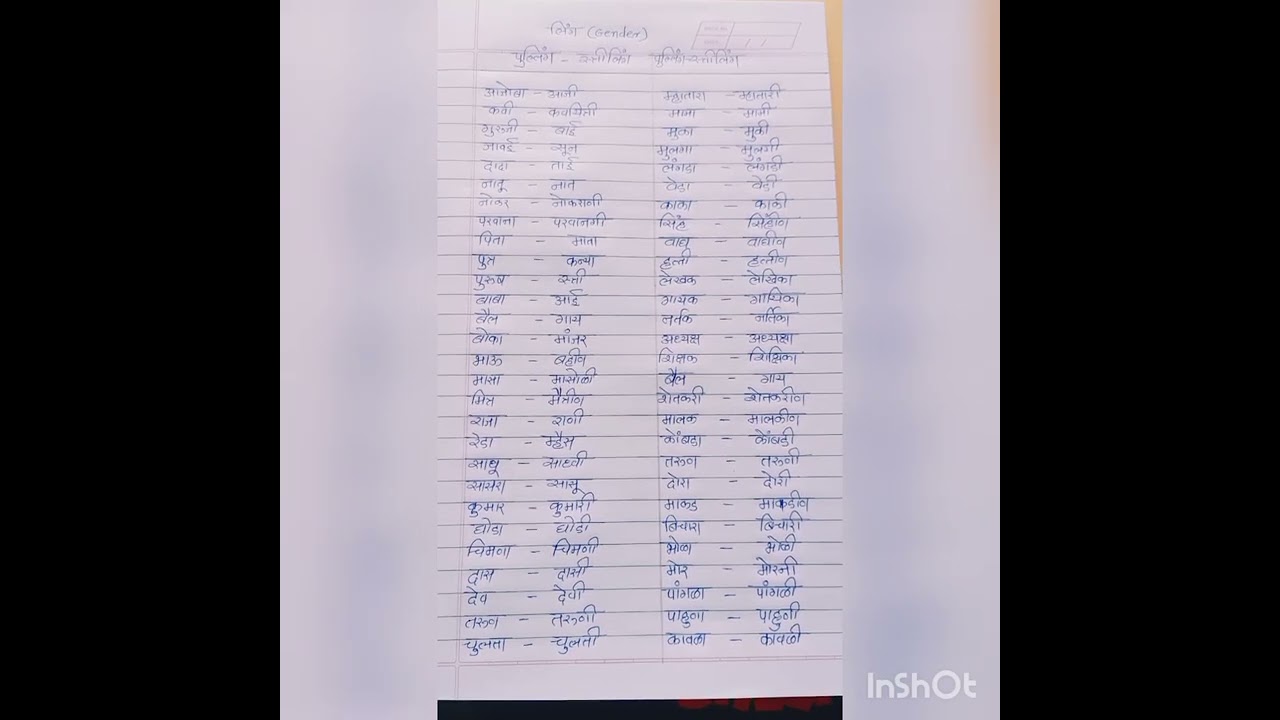 लिंग (Gender)
पुल्लिंग - स्त्रीलिंग पुल्लिंग-स्त्रीलिंग
आजोबा - आजी म्हातारा - म्हातारी
कवी - कवयित्री
गुरुजी - बाई मुका - मुकी
जावई - सून मुलगा - मुलगी
दादा - ताई लंगडा - लंगडी
नातू - नात वेडा - वेडी
नोकर - नोकराणी काका - काकी
परवाना - परवानगी सिंह - सिंहीण
पिता - माता वाघ - वाघीण
पुत्र - कन्या हत्ती - हत्तीण
पुरुष - स्त्री लेखक - लेखिका
बाबा - आई गायक - गायिका
बैल - गाय नर्तक - नर्तिका
बोका - मांजर अध्यक्ष - अध्यक्षा
भाऊ - बहीण शिक्षक - शिक्षिका
मासा - मासोळी बैल - गाय
मित्र - मैत्रीण शेतकरी - शेतकरीण
राजा - राणी मालक - मालकीण
रेडा - म्हैस कोंबडा - कोंबडी
साधू - साध्वी तरुण - तरुणी
सासरा - सासू दोरा - दोरी
कुमार - कुमारी माकड - माकडीण
घोडा - घोडी बिचारा - बिचारी
चिमणा - चिमणी भोळा - भोळी
दास - दासी मोर - मोरनी
देव - देवी पांगळा - पांगळी
तरुण - तरुणी पाहुणा - पाहुणी
चुलता - चुलती कावळा - कावळी
InShOt